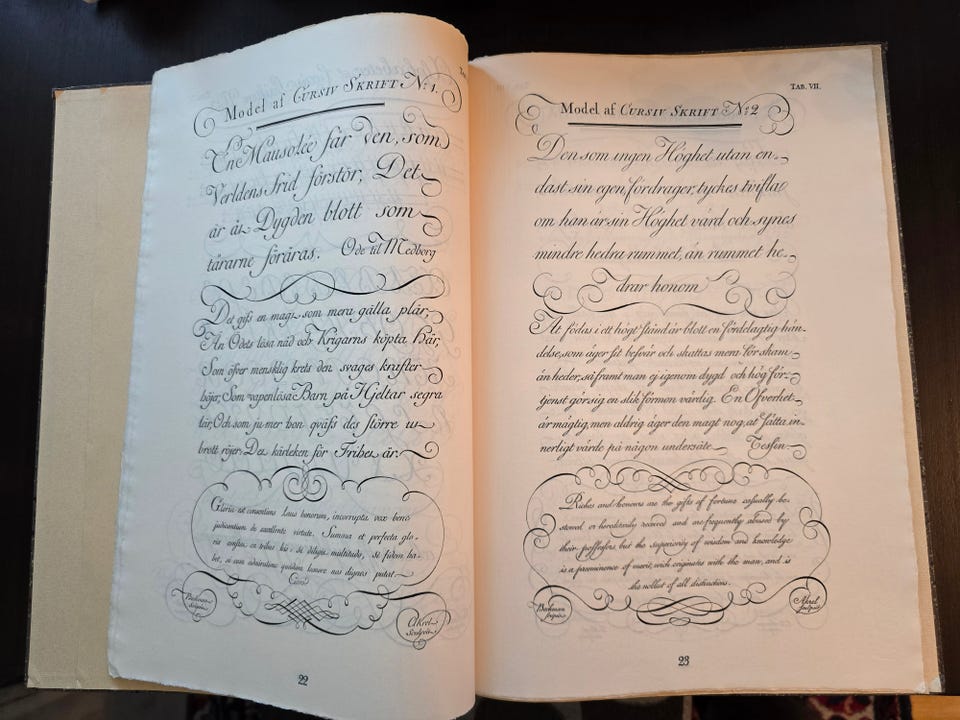 Model af CURSIV SKRIFT No: 1.
En Mausolée får den, som
Verldens frid förstör, Det
är åt Dygden blott som
tårarne föräras. Ode til Medborg
Det gifs en magt som mera gälla plär,
Än Odets lösa nåd och Krigarns köpta här,
Som öfver mensklig krets den svages krafter
höjer, Som vapenlösa Barn på Hjeltar segra
lär, Och som ju mer hon qväfs des större ut-
brott röjer: Det kärleken för Frihet är.
Gloria est consentiens laus bonorum, incorrupta vox bene
judicantium de excellente virtute. Summa et perfecta glo-
ria constat ex tribus his: si diligit multitudo, si fidem ha-
bet, si cum admiratione quadam honore nos dignos putat.
Cicero
Beckman
Scripsit
Akrel
Sculpsit
22
TAB. VII.
Model af CURSIV SKRIFT No: 2
Den som ingen Höghet utan en-
dast sin egen fördrager, tyckes tvifla
om han är sin Höghet värd och synes
mindre hedra rummet, än rummet he-
drar honom
At födas i ett högt stånd är blott en fördelagtig hän-
delse, som äger sit besvär och skattas mera för skam
än heder, så framt man ej igenom dygd och hög för-
tjenst gör sig en slik förmon värdig. En Öfverhet
är mägtig, men aldrig äger den magt nog, at sätta in-
nerligt värde på någon undersåte Tessin.
Riches and honours are the gifts of fortune casually be-
stowed, or hereditarily received and are frequently abused by
their possessors, but the superiority of wisdom and knowledge
is a preeminence of merit, wich originates with the man, and is
the noblest of all distinctions.
Beckman
scripsit
Akrel
sculpsit
23